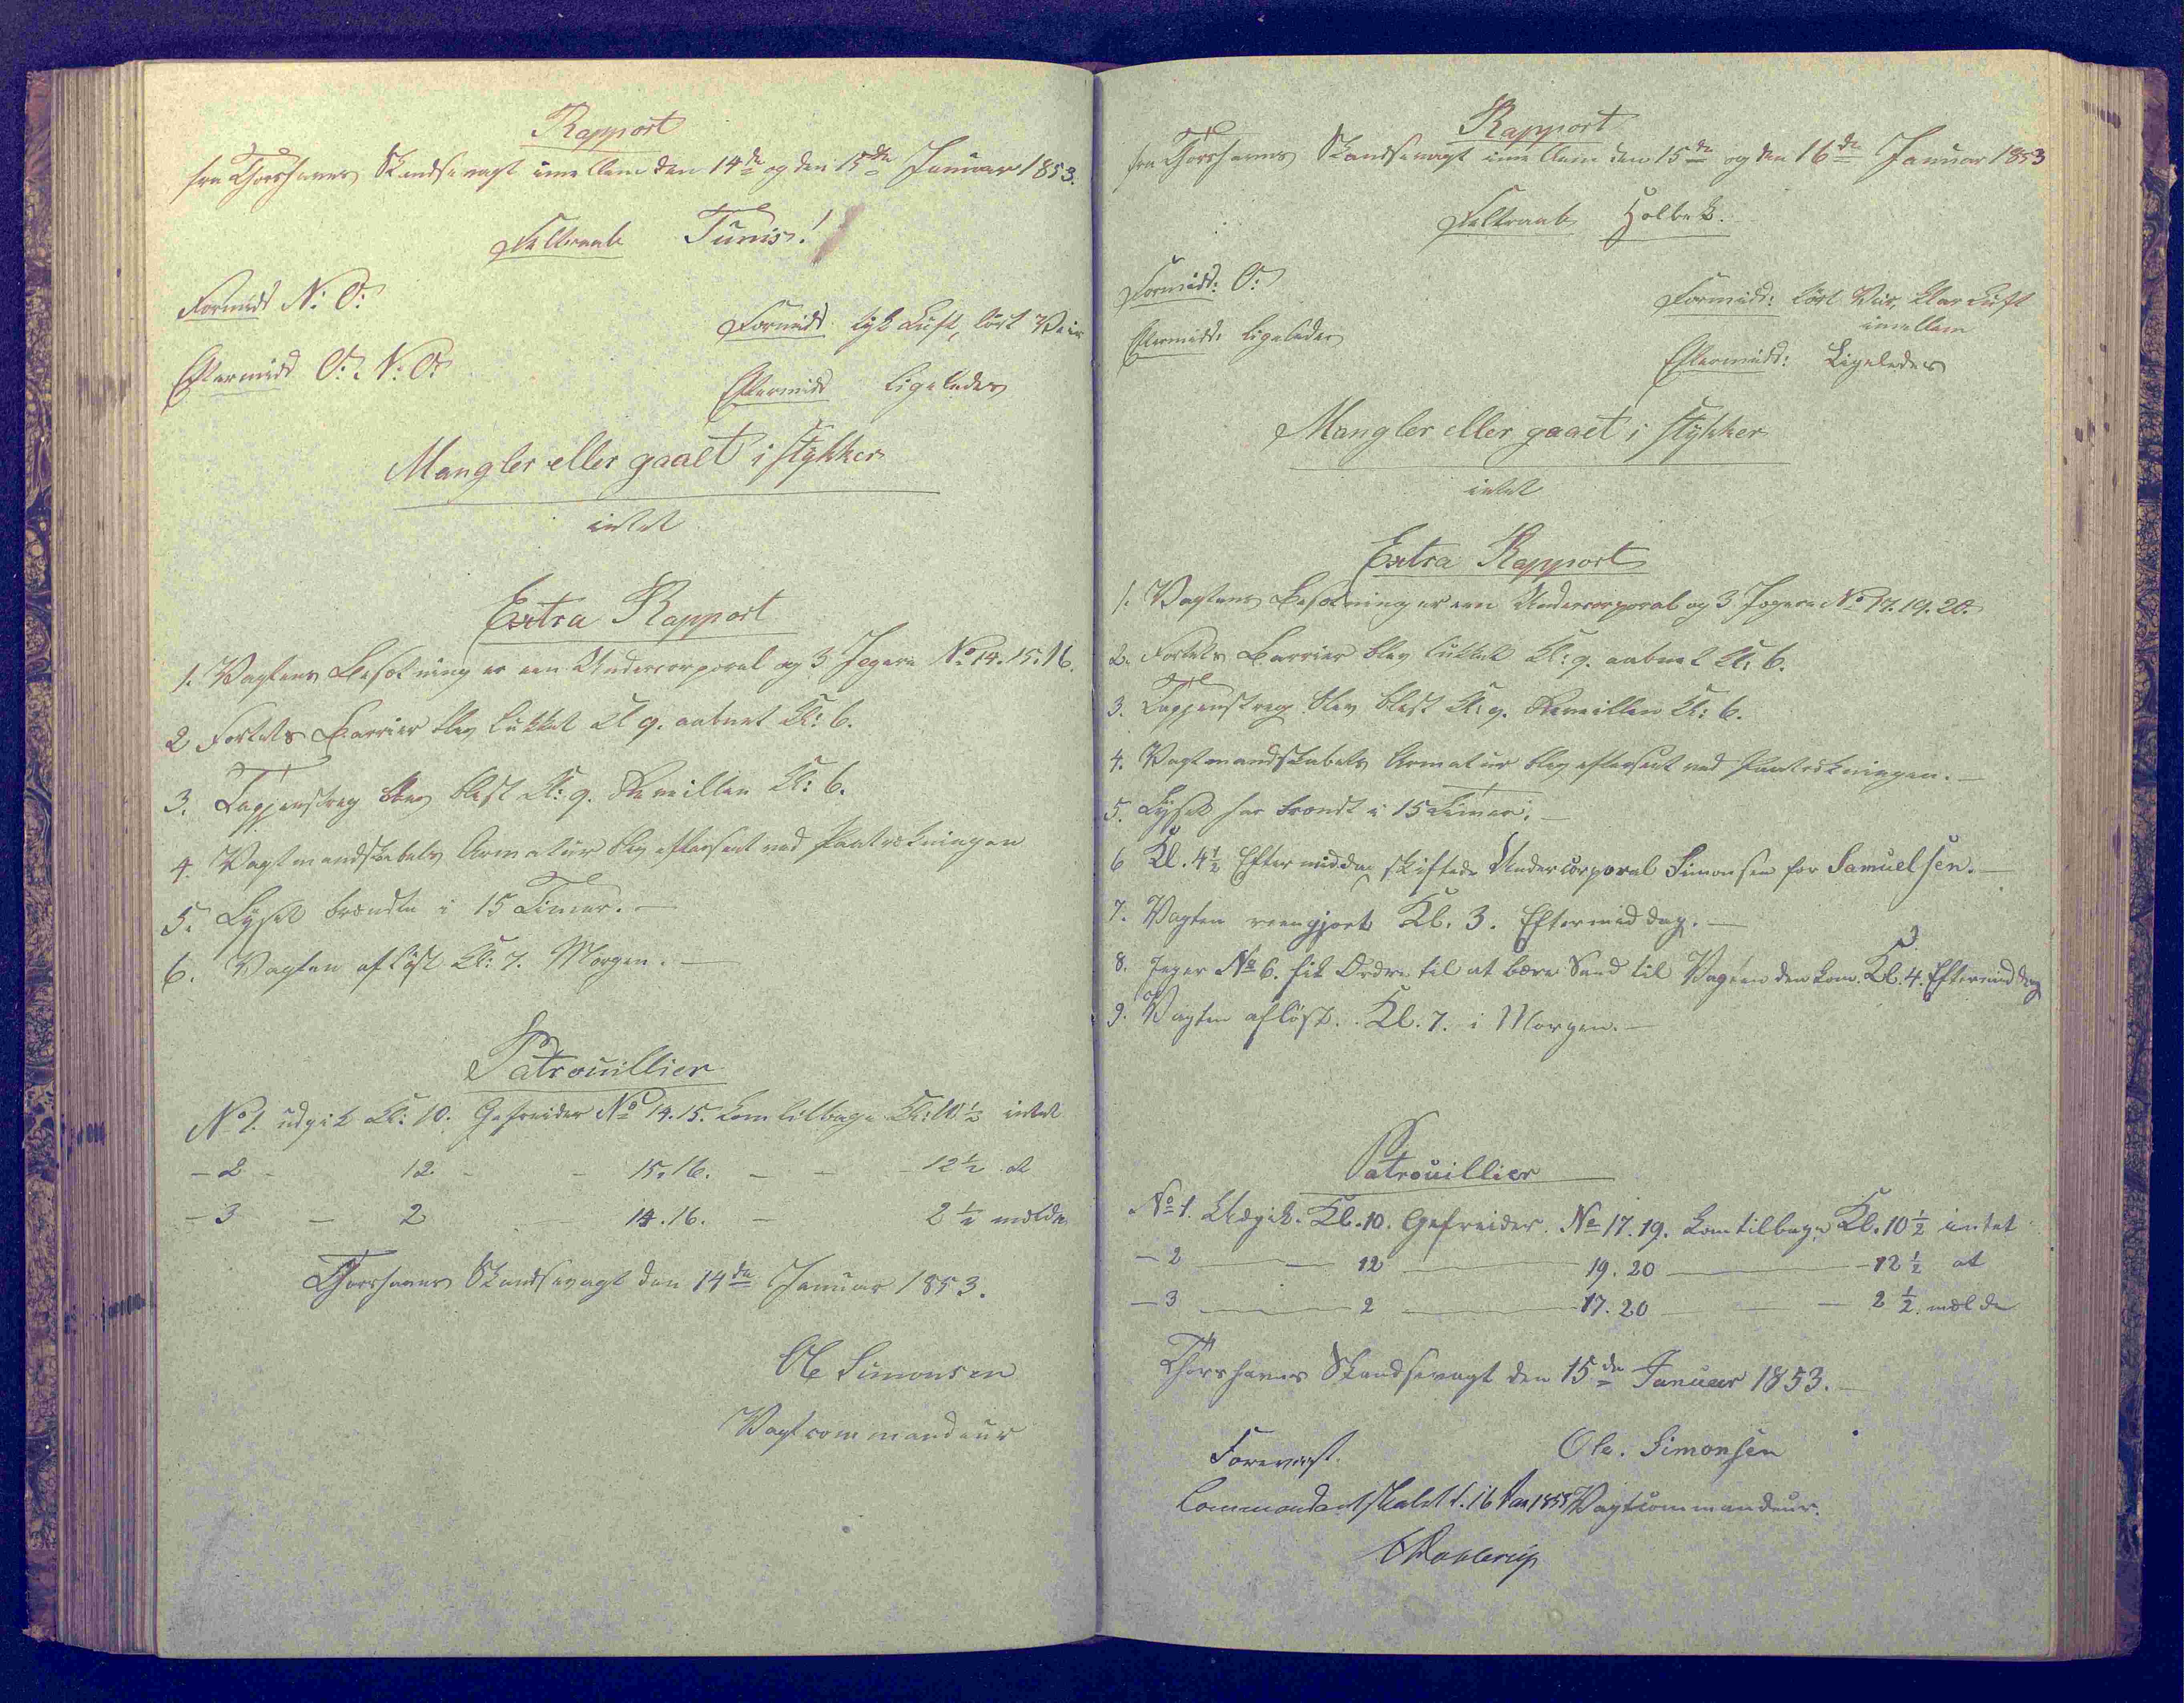 Rapport
fra Thorshavns Skandsevagt imellem den 14de og den 15de Januar 1853.
Feltraab Tunis!
Formidd N: O:
Formidd: tyk Luft, tørt Veir
Eftermidd O: N: O:
Eftermidd ligeledes
Mangler eller gaaet i stykker
intet
Extra Rapport
1. Vagtens Besætning er een Undercorporal og 3 Jegere No 14. 15. 16.
2 Fortets Barrier blev lukket Kl 9. aabnet Kl: 6.
3. Tappenstreg blev blæst Kl: 9. Reveillen Kl: 6.
4. Vagtmandskabets Armatur blev efterseet ved Paatrækningen
5. Lyset brændte i 15 Timer. —
6. Vagten afløst Kl: 7. Morgen. —
Patrouillier
No 1. udgik Kl: 10. Gefreider No 14. 15. kom tilbage Kl: 10 1/2 intet
— 2 - 12 - - 15. 16. — — - 12 1/2 at
— 3 — 2 - 14. 16. — 2 1/2 melde
Thorshavns Skandsevagt den 14de Januar 1853.
Ole Simonsen
Vagtcommandeur
Rapport
fra Thorshavns Skandsevagt imellem den 15de og den 16de Januar 1853
Feltraab Holbek.
Formidd: O:
Formidd: tört Veir, klar Luft
imellem
Eftermidd: ligeledes
Eftermidd: Ligeledes
Mangler eller gaaet i stykker
intet
Extra Rapport
1. Vagtens Besætning er een Undercorporal og 3 Jegere No 17. 19. 20.
2. Fortets Barrier blev lukket Kl: 9. aabnet Kl: 6.
3. Tappenstreg blev blæst Kl: 9. Reveillen Kl: 6.
4. Vagtmandskabets Armatur blev efterseet ved Paatrækningen. —
5. Lyset har brændt i 15 Timer. —
6 Kl. 4 1/2 Eftermiddag skiftede Undercorporal Simonsen for Samuelsen. —
7. Vagten reengjort Kl. 3. Eftermiddag. —
8. Jeger No 6. fik Ordre til at bære Sand til Vagten den kom. Kl. 4. Eftermiddag
9. Vagten afløst. Kl. 7. i Morgen. —
Patrouillier
No 1. Udgik. Kl. 10. Gefreider. No 17. 19. kom tilbage Kl. 10 1/2 intet
— 2 — 12 — 19. 20 — 12 1/2 at
— 3 — 2 — 17. 20 — 2 1/2. melde
Thorshavns Skandsevagt den 15de Januar 1853. —
Forevist.
Ole. Simonsen
Commandantskabet d. 16 Jan 1853
Vagtcommandeur.
Dahlerup